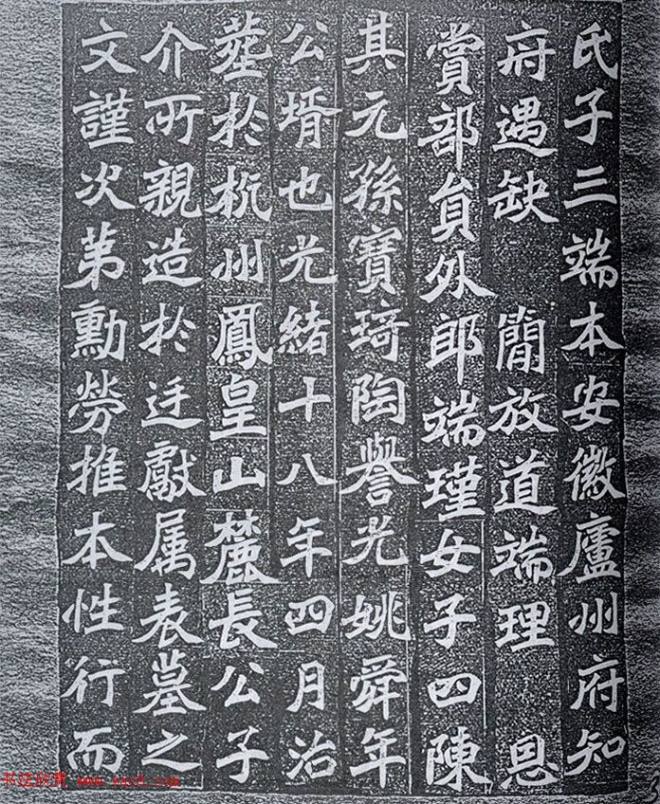 氏子三端本安徽廬州府知
府遇缺 簡放道端理 恩
賞部貟外郎端瑾女子四陳
其元孫寶琦陶譽光姚舜年
公壻也光緒十八年四月治
塟扵杭州鳳皇山麓長公子
介所親造扵廷獻属表墓之
文謹次苐勳勞推本性行而